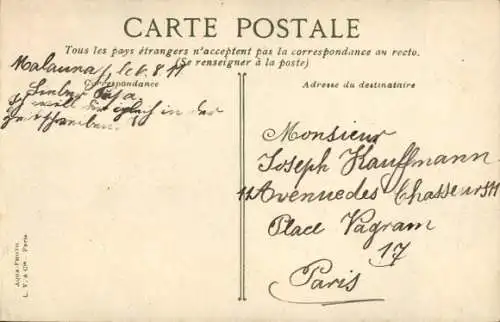 CARTE POSTALE
Tous les pays étrangers n'acceptent pas la correspondance au recto.
(Se renseigner à la poste)
Correspondance
Adresse du destinataire
8. 11
Lieber Papa
Ich will in der
Monsieur
Joseph Kauffmann
11 Avenue des Chasseurs 11
Place Vagram
17
Paris
AQUA-PHOTO
L. V. & Cie - Paris